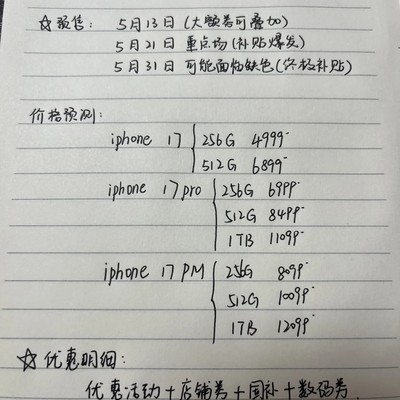 ☆ 预售: 5月13日 (大额券可叠加)
5月21日 重点场 (补贴爆发)
5月31日 可能面临缺色 (终极补贴)
价格预测:
iphone 17 256G 4999
512G 6899
iphone 17 pro 256G 6999
512G 8499
1TB 11099
iphone 17 PM 256G 8099
512G 10099
1TB 12099
☆ 优惠明细:
优惠活动 + 店铺券 + 国补 + 数码券